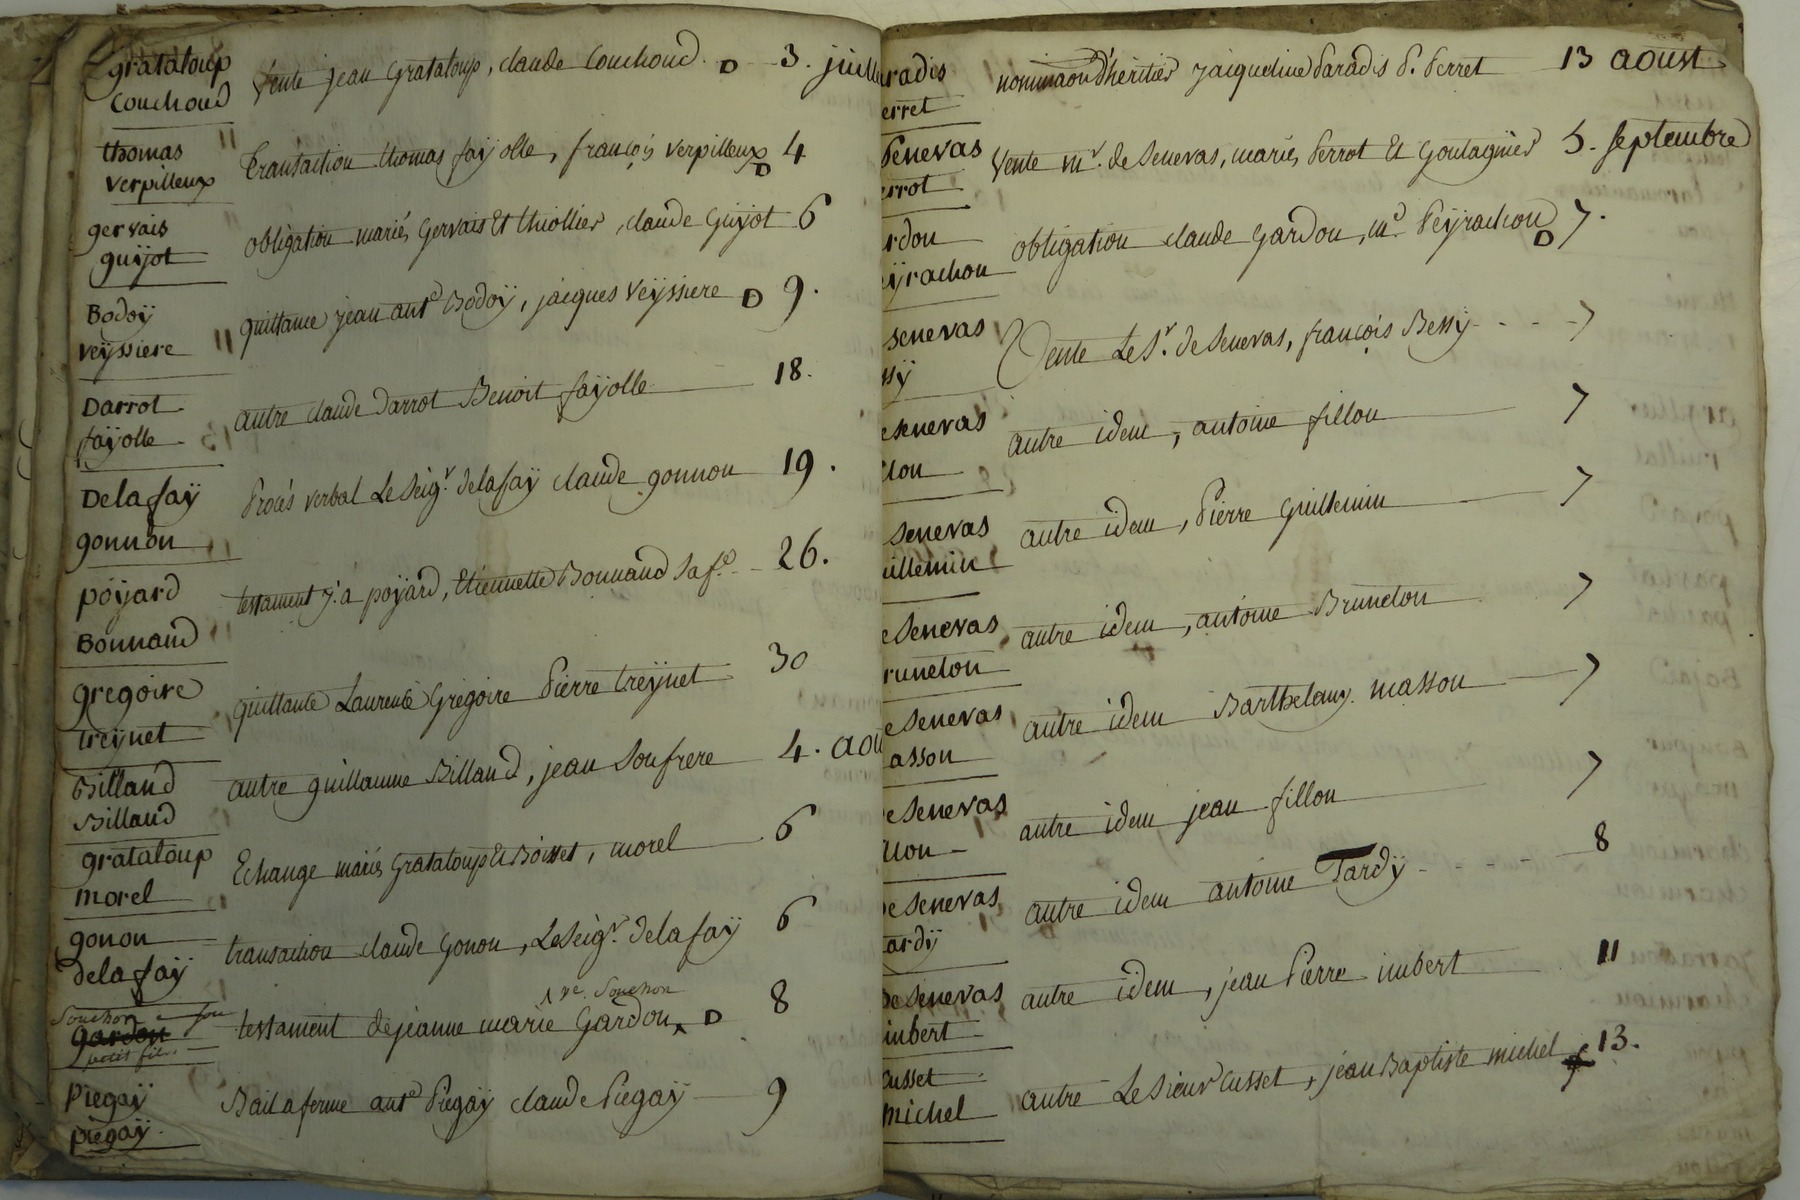 grataloup
Couchoud
Vente jean grataloup, claude Couchoud. D 3. juill
thomas
verpilleux
transaction thomas fayolle, françois verpilleux D 4
gervais
guijot
obligation mariés gervais Et thiollier, claude guijot 6
Bodoÿ
veÿssiere
quittance jean ant.e Bodoÿ, jacques Veÿssiere D 9.
Darrot
faÿolle
autre claude Darrot Benoit faÿolle 18.
Delafaÿ
gonnon
Procés verbal Le Seig.r delafaÿ claude gonnon 19.
poÿard
Bonnand
testament j. a poÿard, Etiennette Bonnand Sa f.e 26.
gregoire
treÿnet
quittance Laurence Gregoire Pierre treÿnet 30
Billand
Billaud
autre guillaume Billand, jean Son frere 4. aou
grataloup
morel
Echange mariés Grataloup Et Boisset, morel 6
gonon
delafaÿ
transaction claude Gonon, Le Seig.r delafaÿ 6
Souchon
gardon
petit fils
ve. Souchon
testament de jeanne marie Gardon D 8
Piegaÿ
piégaÿ
Bail a ferme ant.e Piegaÿ claude Piegaÿ 9
radis
erret
nominaon D'heritier jacqueline Paradis P. Perret 13 aoust
Senevas
errot
Vente m.r de Senevas, mariés Perrot Et Goutagnier 5. Septembre
rdon
eÿrachon
obligation claude Gardon, m.d Peÿrachon D 7.
senevas
ssÿ
Vente Le S.r de Senevas, françois Bessÿ 7
esenevas
llon
autre idem, antoine fillon 7
senevas
uillemin
autre idem, Pierre Guillemin 7
eSenevas
runelon
autre idem, antoine Brunelon 7
eSenevas
asson
autre idem Barthelemy. masson 7
eSenevas
llon
autre idem jean fillon 7
eSenevas
ardÿ
autre idem antoine Tardÿ 8
DeSenevas
imbert
autre idem, jean Pierre imbert 11
Cusset
michel
autre Le Sieur Cusset, jean Baptiste michel 13.